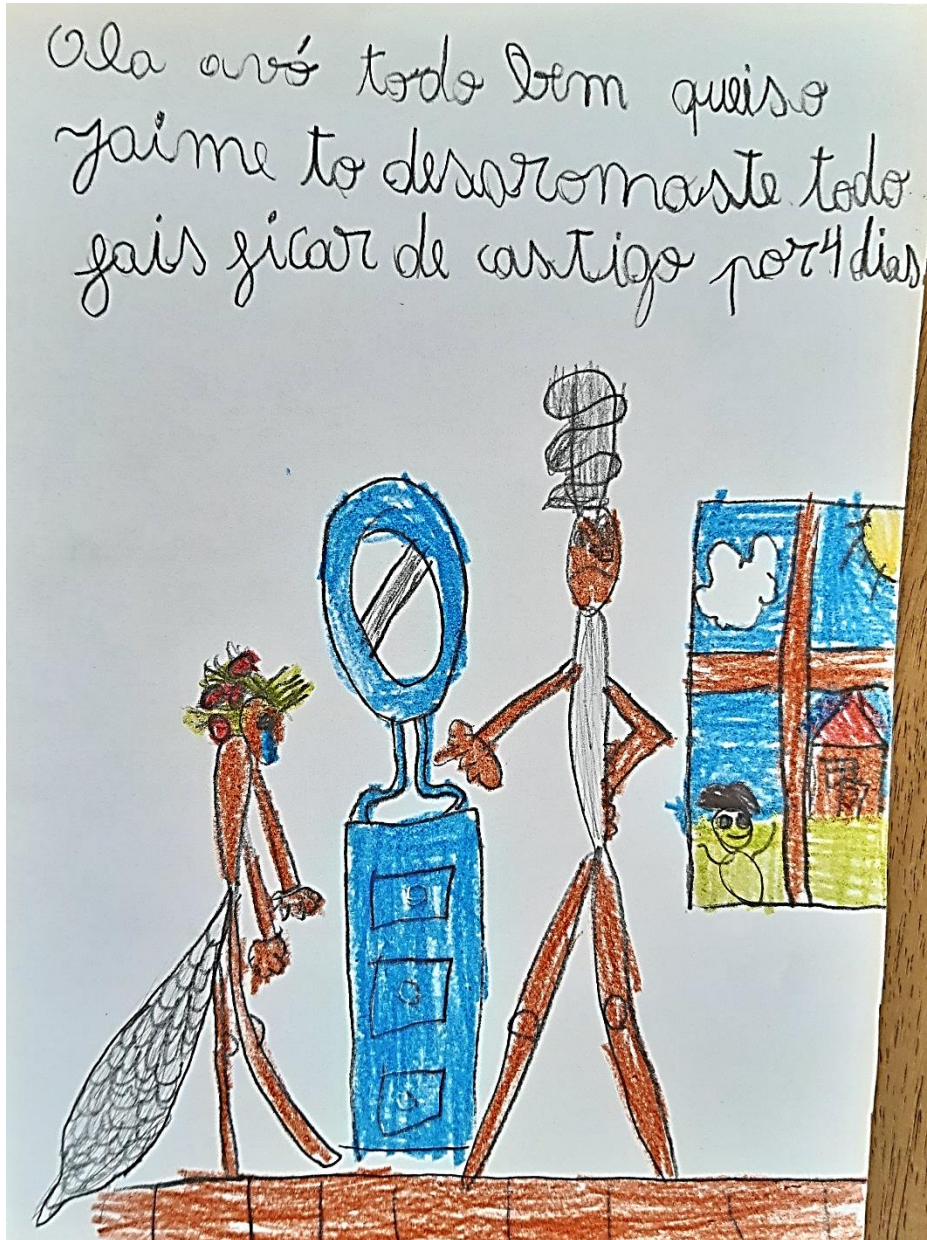 Ola avó todo bem queiso
Jaime to desaromaste todo
fais ficar de castigo por 4 dias